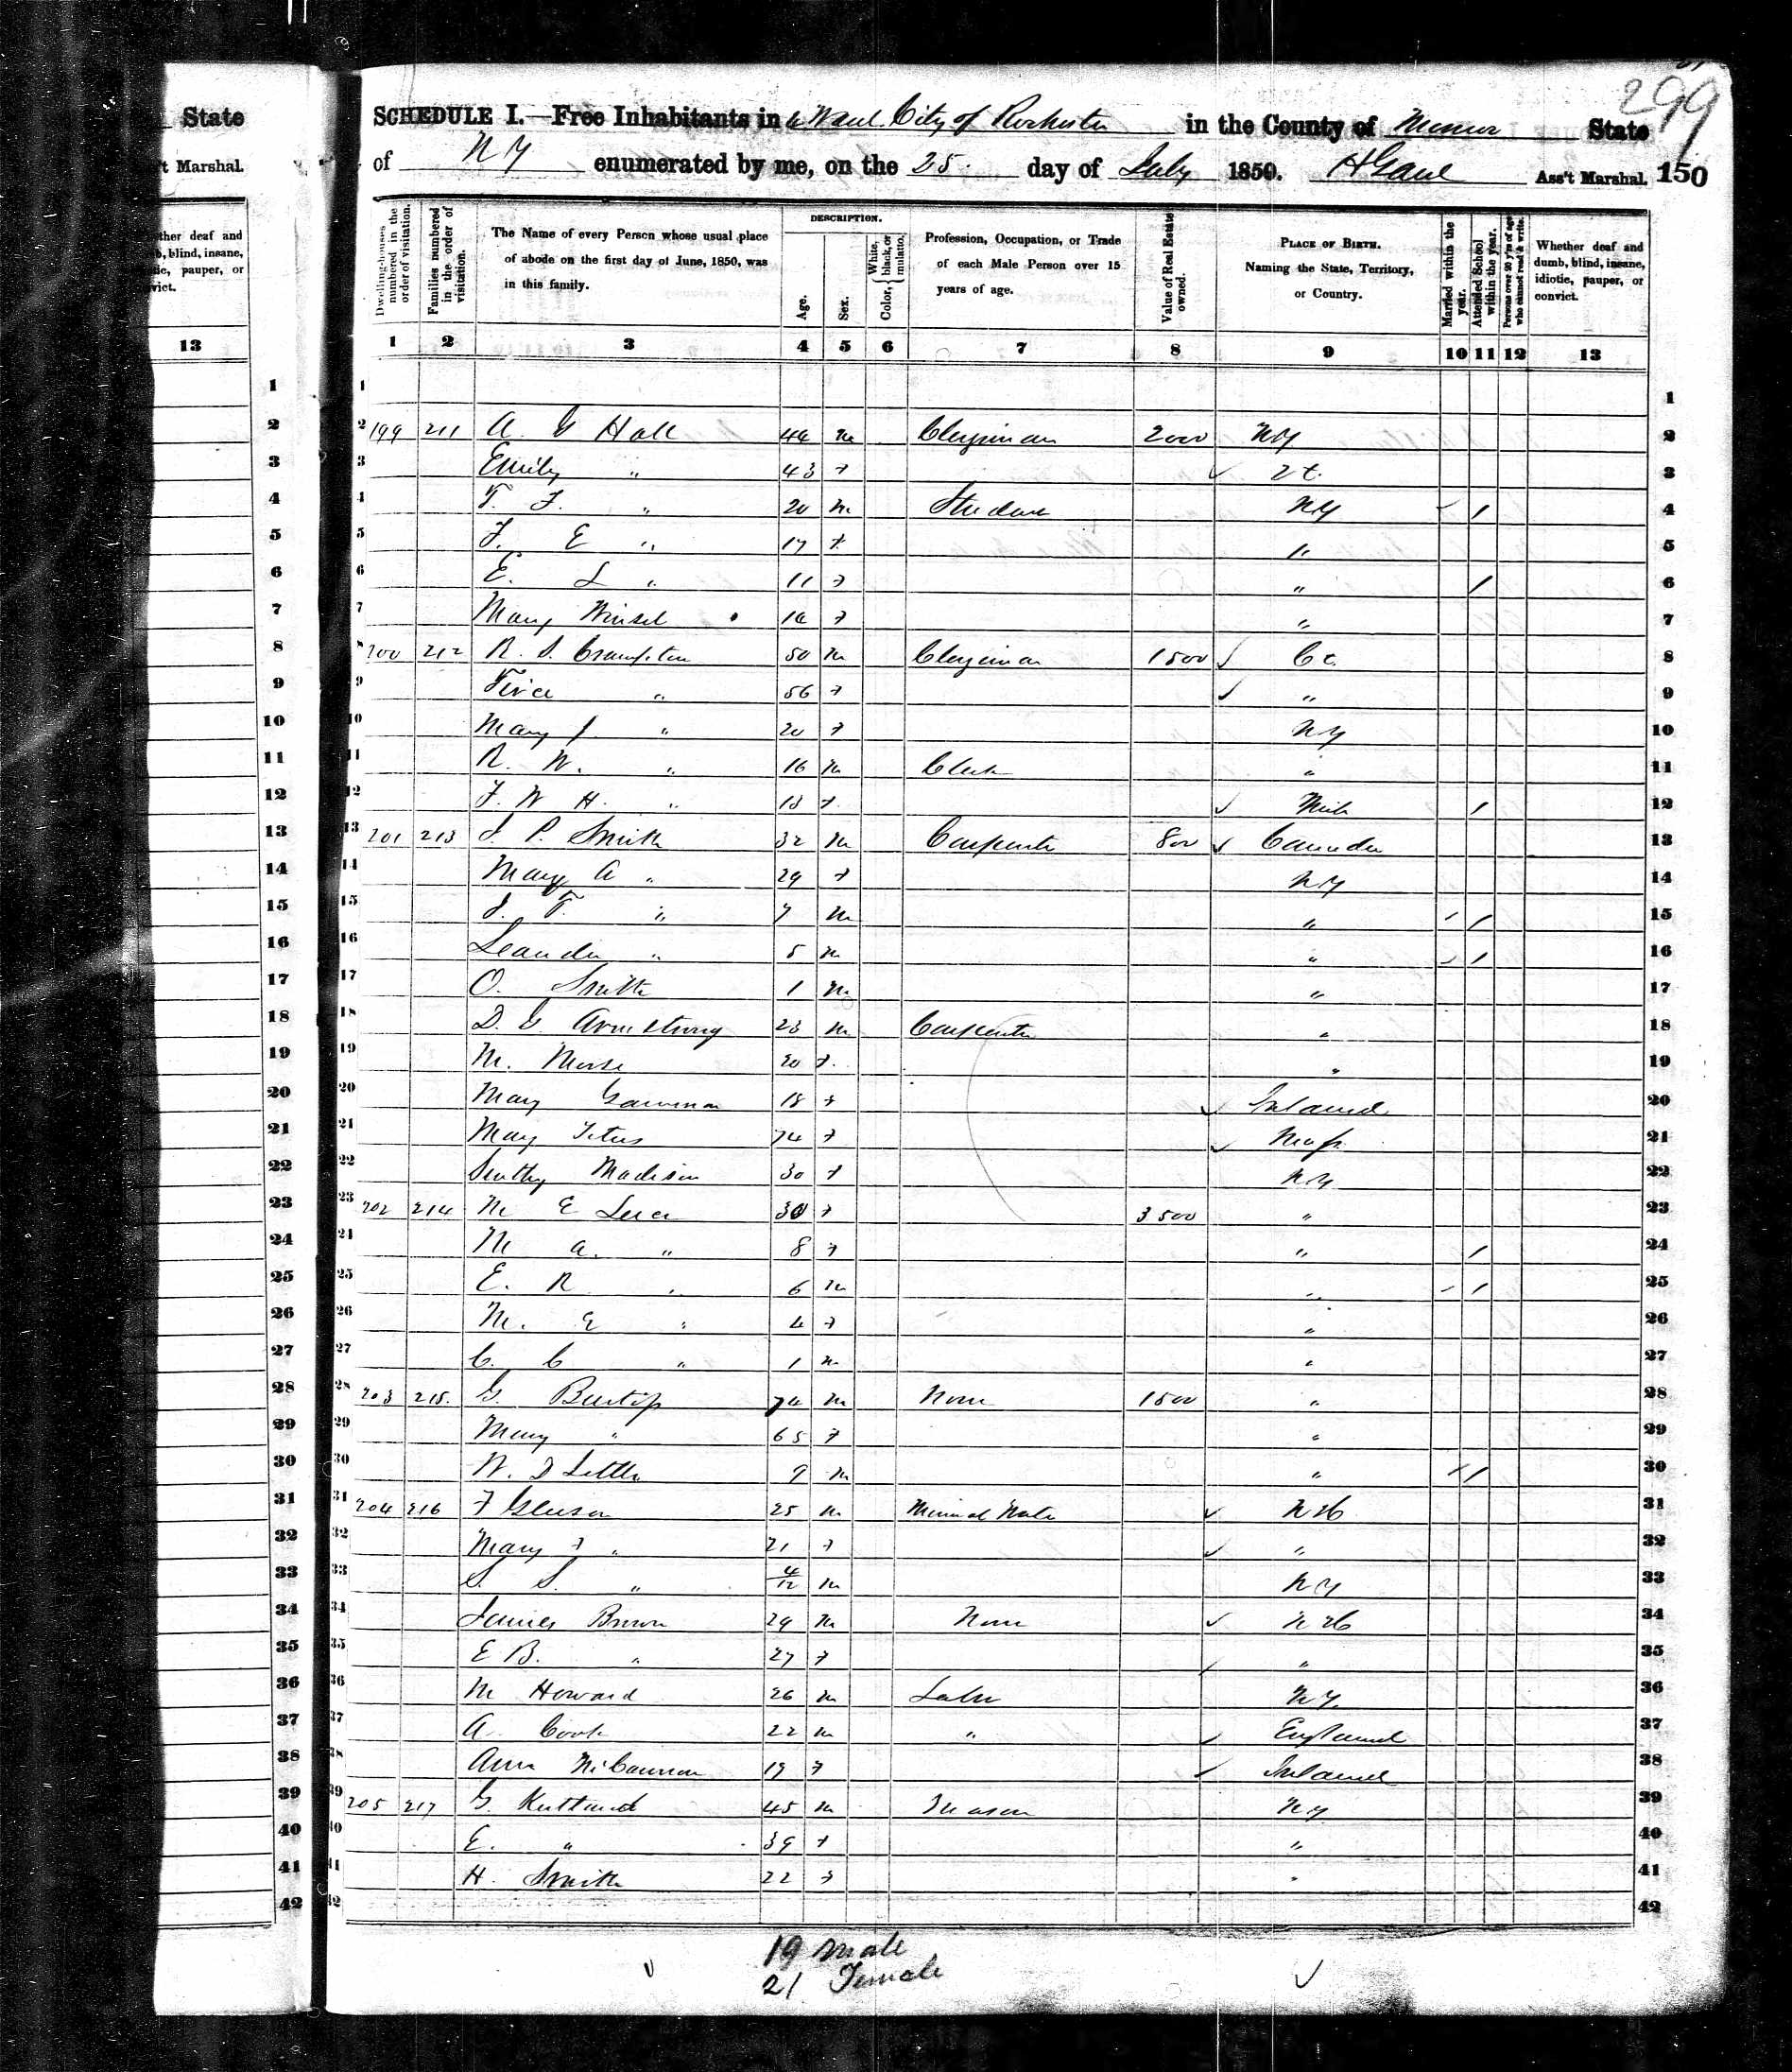 State
t Marshal.
ther deaf and
b, blind, insane,
tic, pauper, or
vict.
13
299
SCHEDULE I.—Free Inhabitants in 6 Ward City of Rochester in the County of Monroe State
of N Y enumerated by me, on the 25 day of July 1850. Ass't Marshal. 150
Dwelling-houses numbered in the order of visitation.
Families numbered in the order of visitation.
The Name of every Person whose usual place of abode on the first day of June, 1850, was in this family.
DESCRIPTION.
Age.
Sex.
Color, White, black, or mulatto.
Profession, Occupation, or Trade of each Male Person over 15 years of age.
Value of Real Estate owned.
PLACE OF BIRTH. Naming the State, Territory, or Country.
Married within the year.
Attended School within the year.
Persons over 20 y'rs of age who cannot read & write.
Whether deaf and dumb, blind, insane, idiotic, pauper, or convict.
1 2 3 4 5 6 7 8 9 10 11 12 13
1 1
2 199 211 A G Hall 44 m Clergyman 2000 NY 2
3 Emily " 43 f Vt. 3
4 T. F. " 20 m Student NY / 4
5 F. E " 17 f " 5
6 E. L " 11 f " / 6
7 Mary 16 f " 7
8 200 212 R. S. Crampton 50 m Clergyman 1500 Ct. 8
9 " 56 f " 9
10 Mary J " 20 f NY 10
11 R. W. " 16 m Clerk " 11
12 F. W H. " 13 f Mich / 12
13 201 213 J. P. Smith 32 m Carpenter 800 Canada 13
14 Mary A " 29 f NY 14
15 J. F. " 7 m " / 15
16 Leander " 5 m " / 16
17 O. Smith 1 m " 17
18 D. G Armstrong 23 m Carpenter " 18
19 M. Morse 20 f " 19
20 Mary 18 f Ireland 20
21 Mary Titus 74 f Mass 21
22 Madison 30 f NY 22
23 202 214 M E 30 f 3500 " 23
24 M a. " 8 f " / 24
25 E. R " 6 m " / 25
26 M. E " 4 f " 26
27 C. C " 1 m " 27
28 203 215. G. 74 m None 1500 " 28
29 Mary " 65 f " 29
30 W. D Little 9 m " / 30
31 204 216 F Gleason 25 m Mineral Water N H 31
32 Mary F " 21 f " 32
33 S. S. " 4/12 m NY 33
34 James Brown 29 m None N H 34
35 E B. " 27 f " 35
36 M Howard 26 m Labor NY. 36
37 A Cook 22 m " England 37
38 Ann 19 f Ireland 38
39 205 217 G. 45 m Mason NY 39
40 E. " 39 f " 40
41 H. Smith 22 f " 41
42 42
19 Male
21 Female